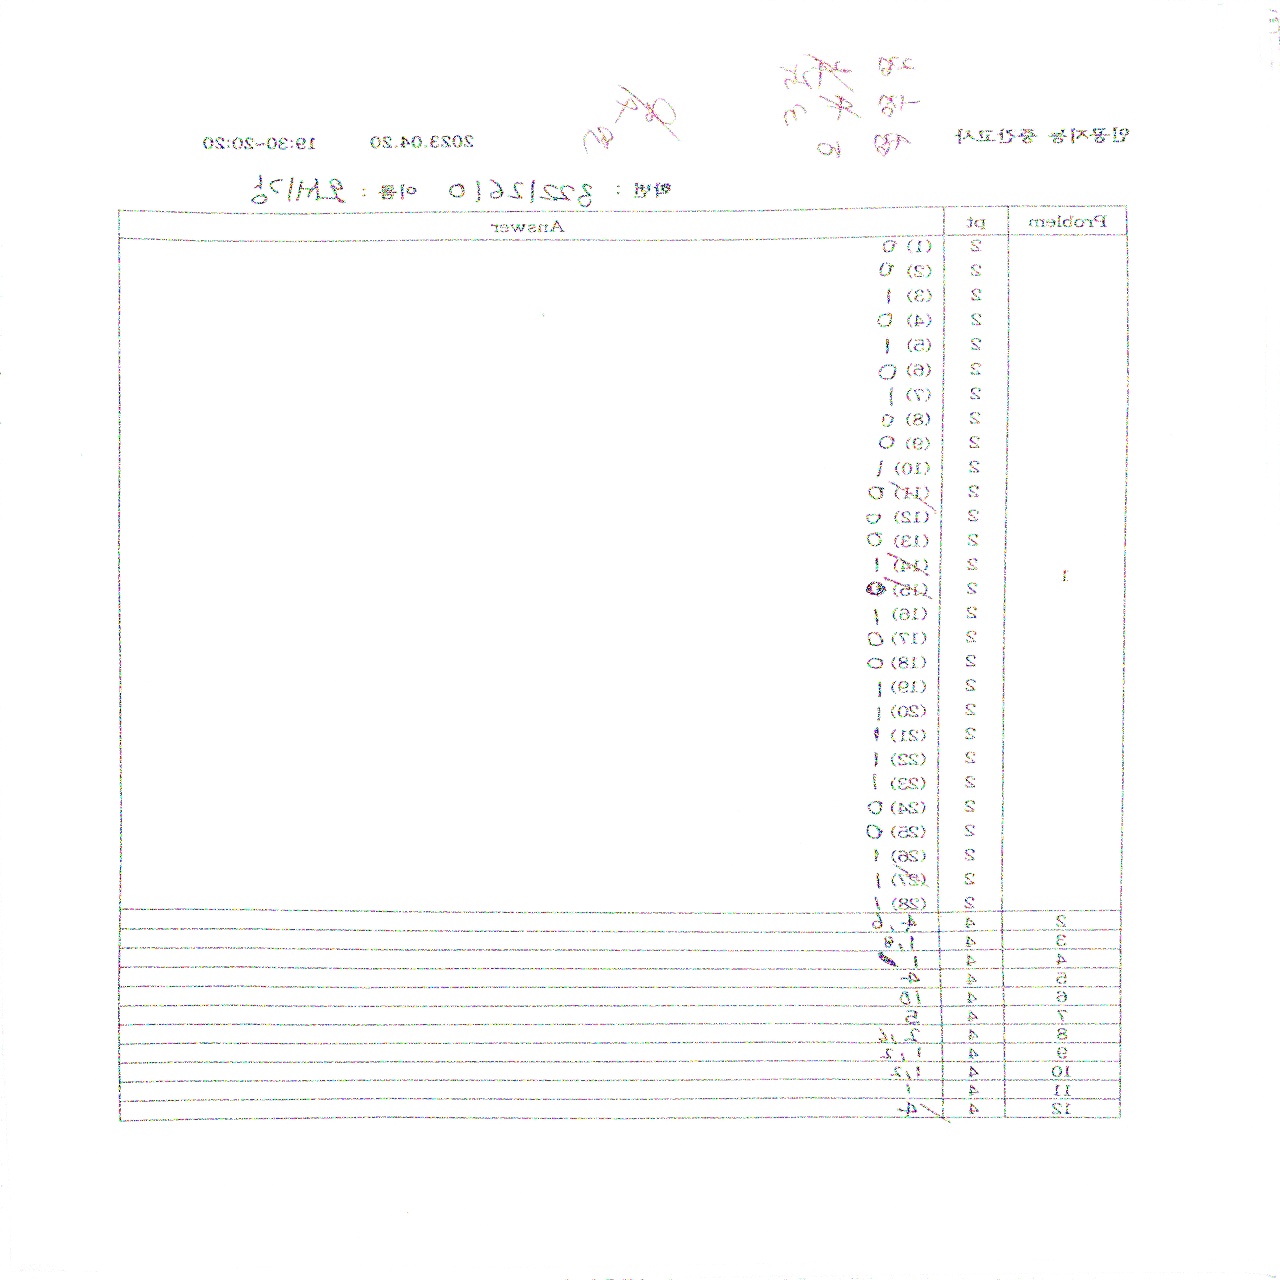 인공지능 중간고사 2023.04.20 19:30-20:20
학번 : 32212610 이름 :
Problem pt Answer
1
2 (1) 0
2 (2) 0
2 (3) 1
2 (4) 0
2 (5) 1
2 (6) 0
2 (7) 1
2 (8) 0
2 (9) 0
2 (10) 1
2 (11) 0
2 (12) 0
2 (13) 0
2 (14) 1
2 (15)
2 (16) 1
2 (17) 0
2 (18) 0
2 (19) 1
2 (20) 1
2 (21) 1
2 (22) 1
2 (23) 1
2 (24) 0
2 (25) 0
2 (26) 1
2 (27) 1
2 (28) 1
2 4 4, 6
3 4 1,
4 4 1
5 4 4
6 4 10
7 4 5
8 4 2,
9 4 1, 2
10 4 1, 2
11 4 1
12 4 4